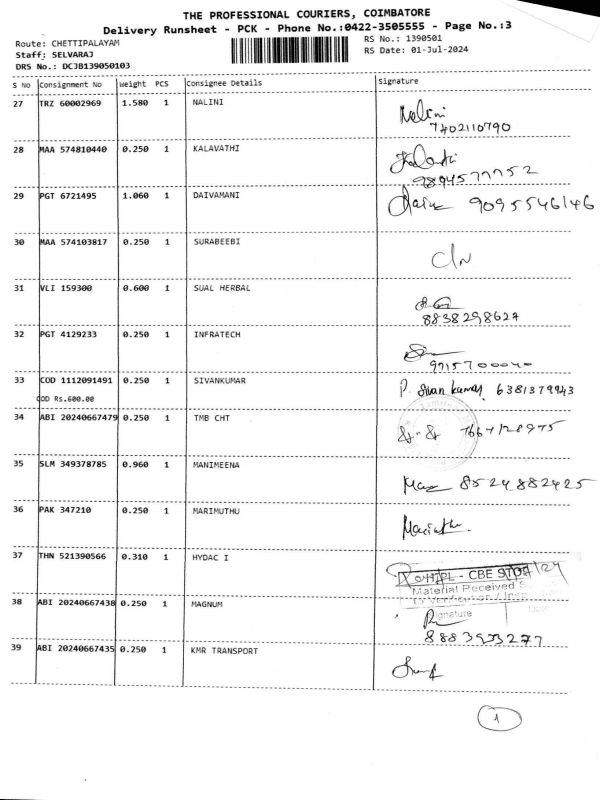 THE PROFESSIONAL COURIERS, COIMBATORE
Delivery Runsheet - PCK - Phone No.:0422-3505555 - Page No.:3
Route: CHETTIPALAYAM
RS No.: 1390501
Staff: SELVARAJ
RS Date: 01-Jul-2024
DRS No.: DCJB139050103
S No Consignment No Weight PCS Consignee Details Signature
27 TRZ 60002969 1.580 1 NALINI Nalini
7402110790
28 MAA 574810440 0.250 1 KALAVATHI
9894577752
29 PGT 6721495 1.060 1 DAIVAMANI 9095546146
30 MAA 574103817 0.250 1 SURABEEBI C/N
31 VLI 159300 0.600 1 SUAL HERBAL
8838298627
32 PGT 4129233 0.250 1 INFRATECH
33 COD 1112091491 0.250 1 SIVANKUMAR P. Sivan kumar 6381379943
COD Rs.600.00
34 ABI 20240667479 0.250 1 TMB CHT
35 SLM 349378785 0.960 1 MANIMEENA 8524882425
36 PAK 347210 0.250 1 MARIMUTHU
37 THN 521390566 0.310 1 HYDAC I
- CBE STOR
Material Received
38 ABI 20240667438 0.250 1 MAGNUM
Signature
8883933277
39 ABI 20240667435 0.250 1 KMR TRANSPORT
1